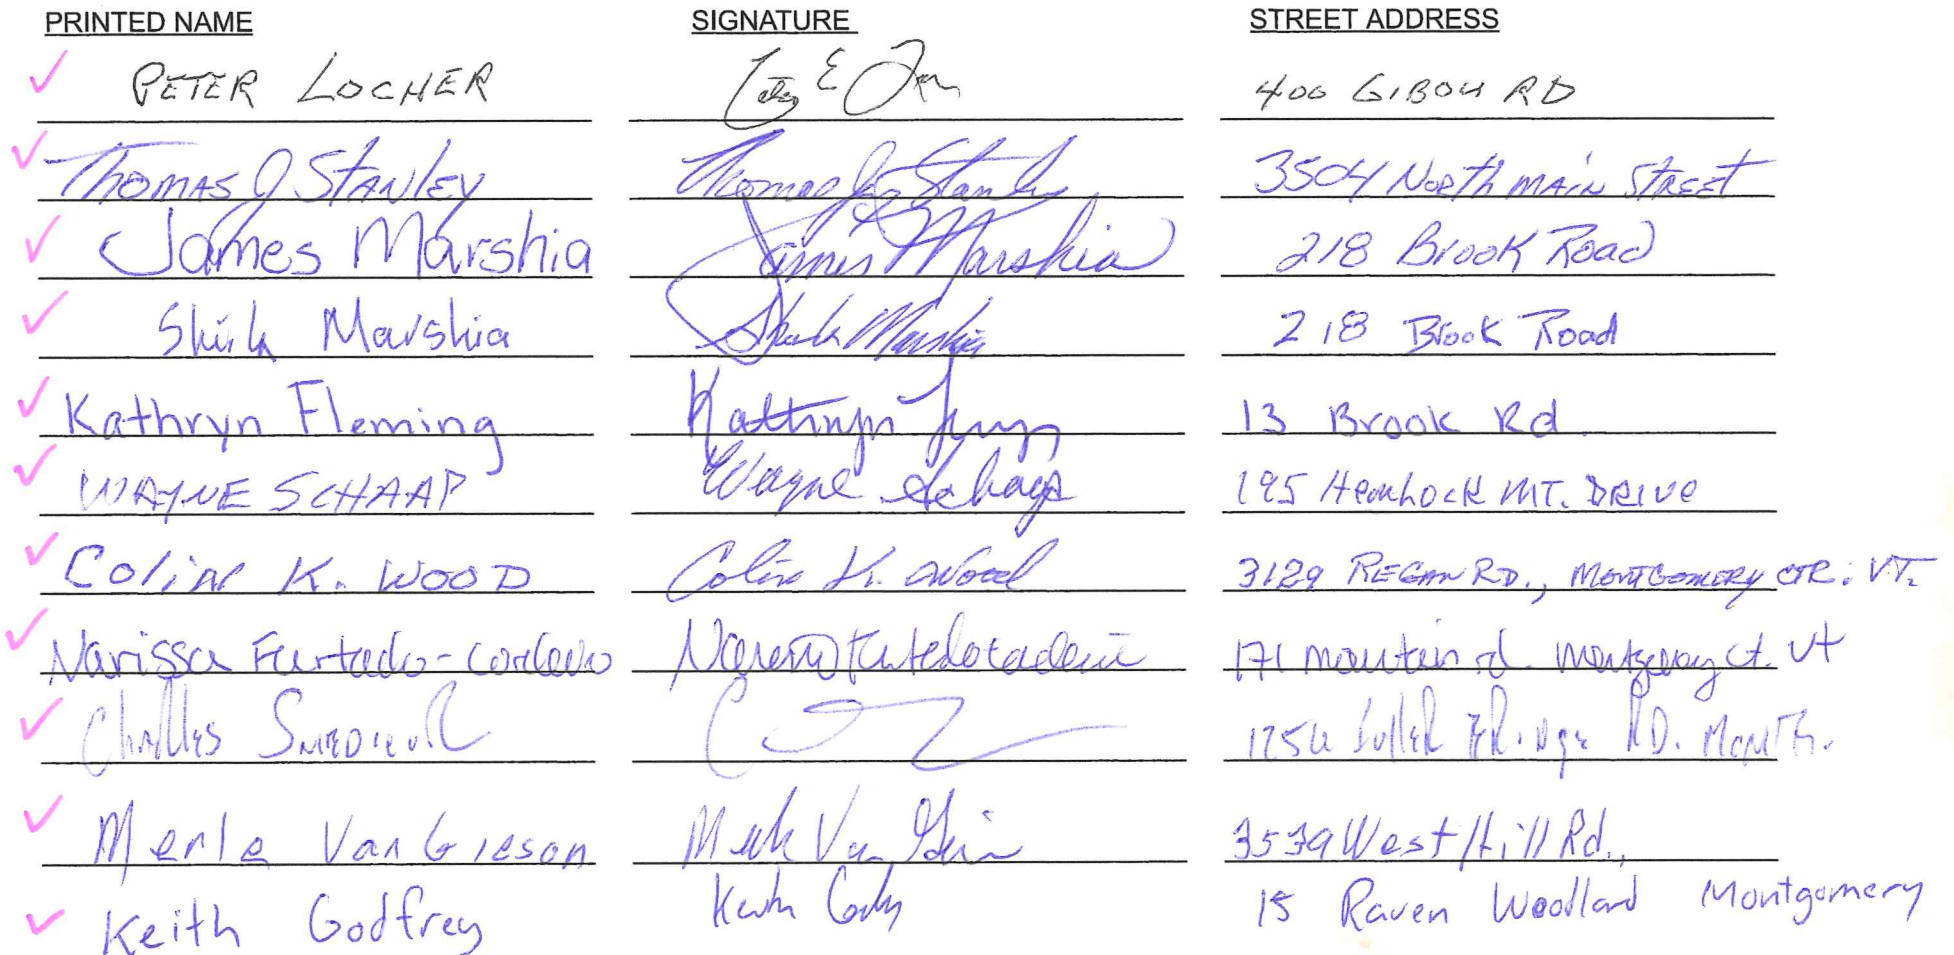 PRINTED NAME SIGNATURE STREET ADDRESS
PETER LOCHER 400 GIBOU RD
THOMAS J STANLEY Thomas J Stanley 3504 NORTH MAIN STREET
James Marshia James Marshia 218 Brook Road
Marshia Marshia 218 Brook Road
Kathryn Fleming Kathryn 13 Brook Rd.
WAYNE SCHAAP Wayne Schaap 195 HEMLOCK MT. DRIVE
COLIN K. WOOD Colin K. Wood 3129 REGAN RD., MONTGOMERY CTR. VT.
Narissa Furtado- 171 mountain rd. Montgomery ct. vt
RD. MONTG.
Merle VanGieson Van 3539 West Hill Rd.,
Keith Godfrey Keith 15 Raven Woodland Montgomery